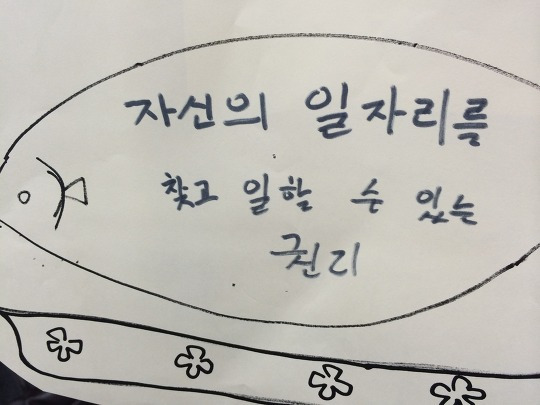 자신의 일자리를
찾고 일할 수 있는
권리